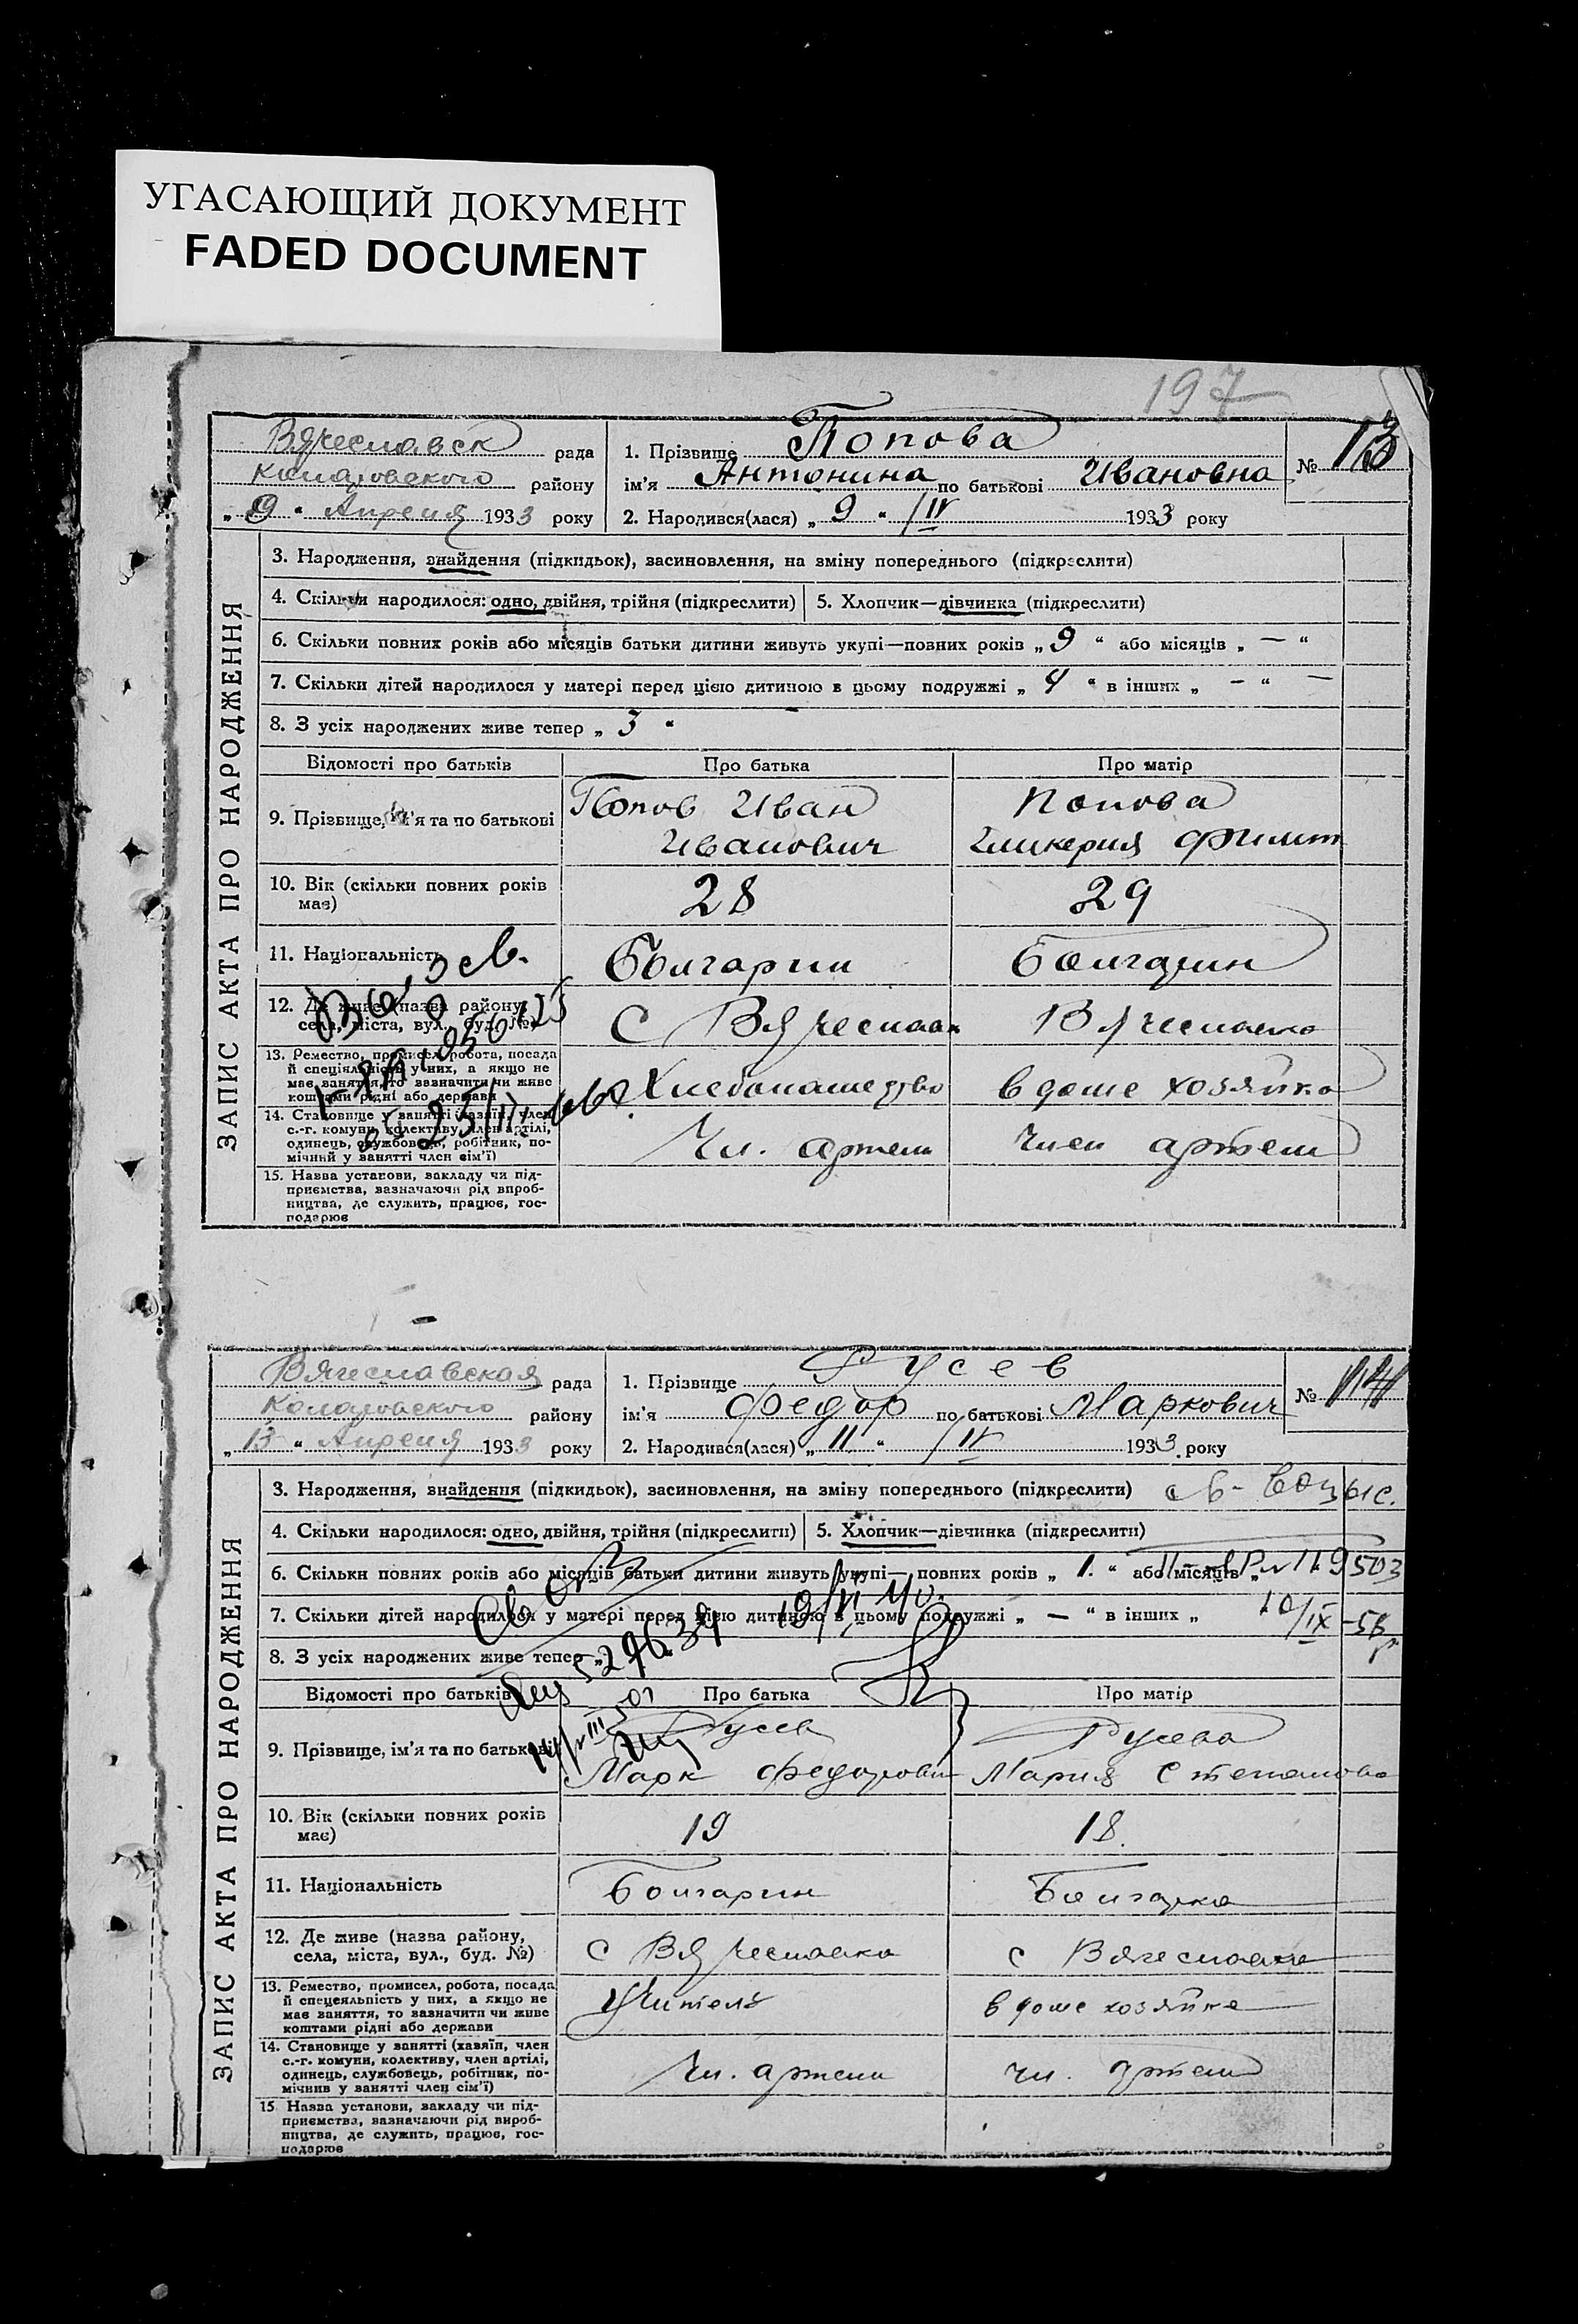 УГАСАЮЩИЙ ДОКУМЕНТ
FADED DOCUMENT
197
Вячеславск рада
Коларовского району
„ 9 “ Апреля 1933 року
1. Прізвище Попова
ім'я Антонина по батькові Ивановна
2. Народився(лася) „ 9 “ IV 1933 року
№ 13
ЗАПИС АКТА ПРО НАРОДЖЕННЯ
3. Народження, знайдення (підкидьок), засиновлення, на зміну попереднього (підкреслити)
4. Скільки народилося: одно, двійня, трійня (підкреслити) 5. Хлопчик—дівчинка (підкреслити)
6. Скільки повних років або місяців батьки дитини живуть укупі—повних років „ 9 “ або місяців „ — “
7. Скільки дітей народилося у матері перед цією дитиною в цьому подружжі „ 4 “ в інших „ — “ —
8. З усіх народжених живе тепер „ 3 “
Відомості про батьків Про батька Про матір
9. Прізвище, ім'я та по батькові
Попов Иван
Иванович
Попова
Гликерия Филип
10. Вік (скільки повних років
має)
28 29
11. Національність Болгарин Болгарин
12. Де живе (назва району,
села, міста, вул., буд. №)
С Вячеславк Вячеславка
13. Ремество, промисел, робота, посада
й спеціяльність у них, а якщо не
має заняття, то зазначити чи живе
коштами рідні або держави
Хлебопашество в доме хозяйка
14. Становище у занятті (хазяїн, член
с.-г. комуни, колективу, член артілі,
одинець, службовець, робітник, по-
мічний у занятті член сім'ї)
Чл. артели Член артели
15. Назва установи, закладу чи під-
приємства, зазначаючи рід вироб-
ництва, де служить, працює, гос-
подарює
Вячеславская рада
Коларовского району
„ 13 “ Апреля 1933 року
1. Прізвище Русев
ім'я Федор по батькові Маркович
2. Народився(лася) „ 11 “ IV 1933 року
№ 14
ЗАПИС АКТА ПРО НАРОДЖЕННЯ
3. Народження, знайдення (підкидьок), засиновлення, на зміну попереднього (підкреслити)
4. Скільки народилося: одно, двійня, трійня (підкреслити) 5. Хлопчик—дівчинка (підкреслити)
6. Скільки повних років або місяців батьки дитини живуть укупі—повних років „ 1. “ або місяців „
7. Скільки дітей народилося у матері перед цією дитиною в цьому подружжі „ — “ в інших „
10/IX-58
8. З усіх народжених живе тепер „
Відомості про батьків Про батька Про матір
9. Прізвище, ім'я та по батькові
Русев
Марк Федорович
Русева
Мария Степановна
10. Вік (скільки повних років
має)
19 18.
11. Національність Болгарин Болгарка
12. Де живе (назва району,
села, міста, вул., буд. №)
С Вячеславка с Вячеславка
13. Ремество, промисел, робота, посада
й спецеяльність у них, а якщо не
має заняття, то зазначити чи живе
коштами рідні або держави
Учитель в доме хозяйка
14. Становище у занятті (хазяїн, член
с.-г. комуни, колективу, член артілі,
одинець, службовець, робітник, по-
мічнив у занятті член сім'ї)
Чл. артели чл. артели
15 Назва установи, закладу чи під-
приємства, зазначаючи рід вироб-
ництва, де служить, працює, гос-
подарює